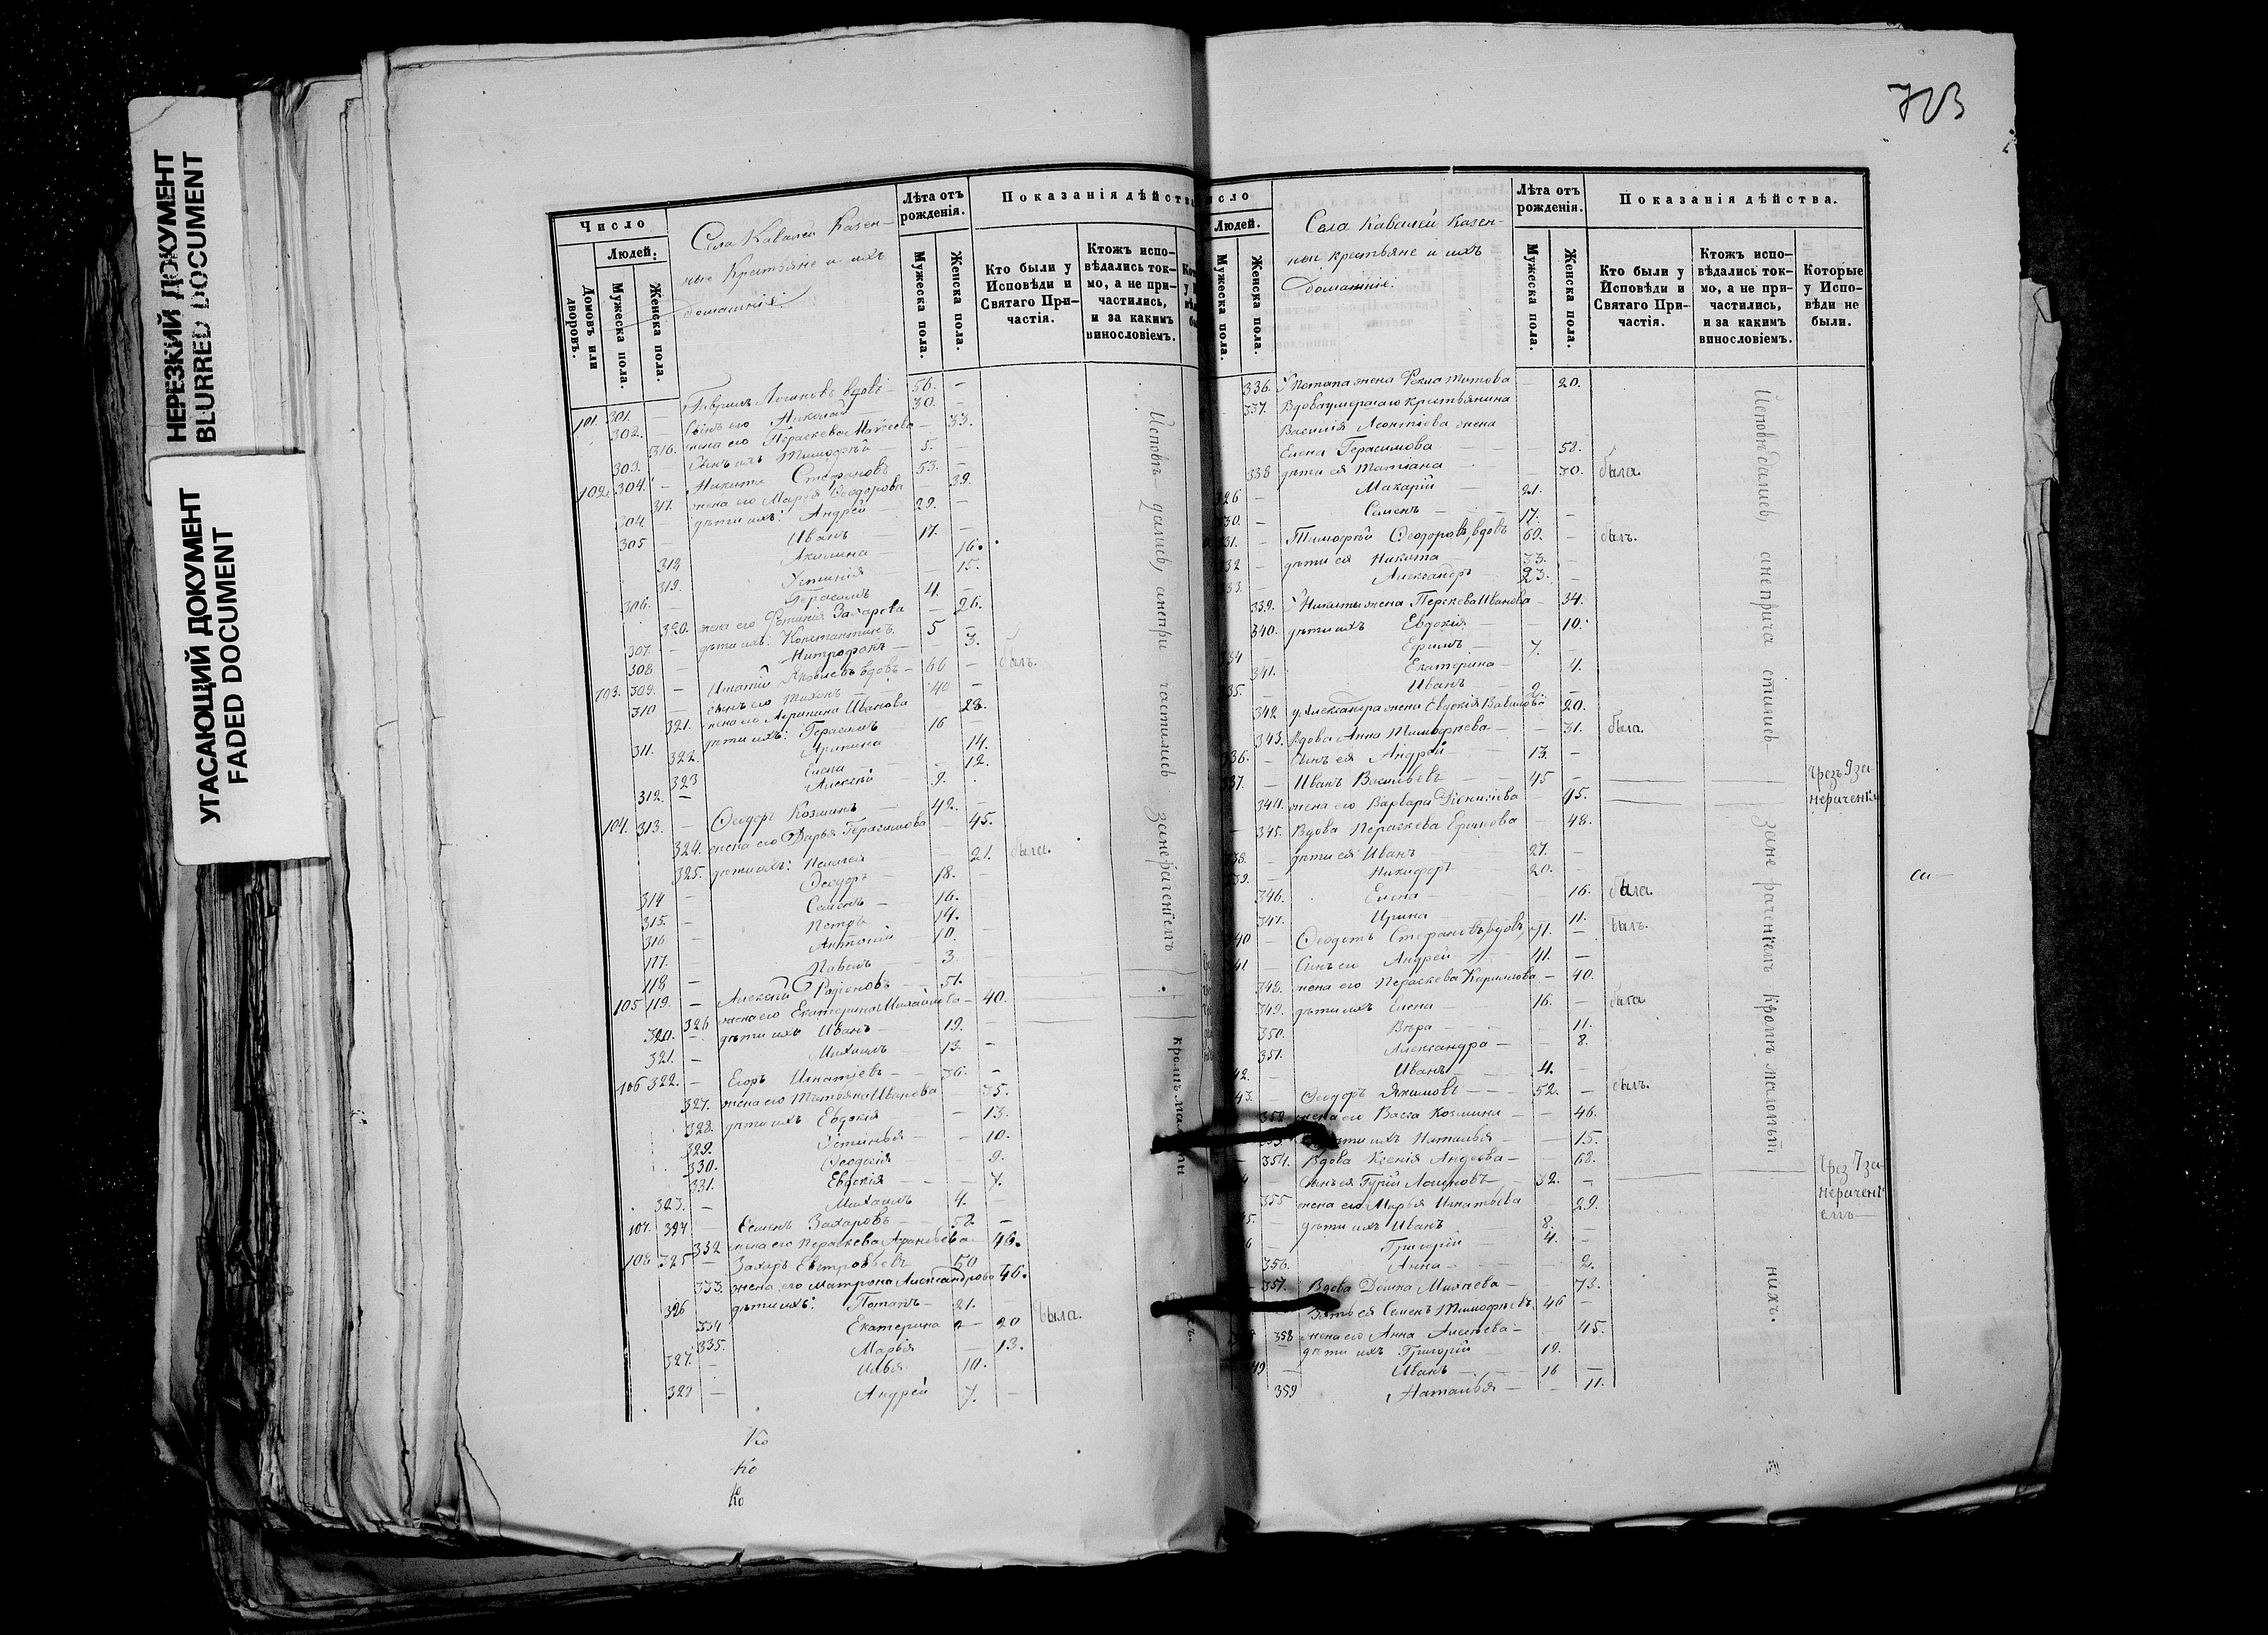 НЕРЕЗКИЙ ДОКУМЕНТ
BLURRED DOCUMENT
УГАСАЮЩИЙ ДОКУМЕНТ
FADED DOCUMENT
Число
Людей.
Домовъ или дворовъ.
Мужеска пола.
Женска пола.
Села Кавалей Казен-
ные Крестьяне и ихъ
домашніе
Лѣта отъ рожденія.
Мужеска пола.
Женска пола.
Показанія дѣйства
Кто были у Исповѣди и Святаго При-частія.
Ктожъ испо-вѣдались ток-мо, а не при-частились, и за какимъ винословіемъ.
101. 301. — Гаврилъ Логиновъ вдовъ 56. —
302. — Сынъ его Николай 30. —
316. жена его Параскева — 33.
303. Сынъ ихъ Тимофѣй 5. —
102. 304. — Никита Стефановъ 53. —
317. жена его Марѳа Ѳеодорова — 39.
304. — дѣти ихъ: Андрей 29. —
305 — Иванъ 17. —
318 Акилина 16.
319. Устинія — 15.
306. — Герасимъ 4. —
320. жена его Фетинія Захарова — 26.
307. — дѣти ихъ: Константинъ 5 —
308 — Митрофанъ — 3.
103. 309. — Игнатій вдовъ 66 — былъ.
310 — сынъ его Тихонъ 40 —
321. жена его Агрипина Иванова — 28.
311. дѣти ихъ: Герасимъ 16 —
322. Арипина 14.
323 Елена — 12.
312. — Алексѣй 9.
104. 313. — Ѳеодоръ Козминъ — 42. —
324. жена его Дарья Герасимова — 45.
325. дѣти ихъ: Пелагея — 21. была.
314 — Ѳеодоръ — 18. —
315. — Семенъ — 16. —
316 — Петръ 14.
117. — Антоній 10. —
118 — Павелъ — 3.
105 119. — Алексѣй Родіоновъ — 51.
326 жена его Екатерина Михайлова — 40.
320. — дѣти ихъ Иванъ — 19. —
321. — Михаилъ 13. —
106 322. — Егоръ Игнатіевъ — 36. —
327. жена его Татьяна Иванова 35.
328. дѣти ихъ Евдокія — 13.
329. Устинья — — 10.
330. Ѳеодосія — 9.
331. Евдокія — — 7.
323. — Михаилъ 4. —
107. 324 — Семенъ Захаровъ — 52 —
332 жена его Параскева 46.
108 325 — Захаръ 50
333. жена его Матрона Александрова 46.
326 дѣти ихъ: Потапъ — 21. —
334 Екатерина — 20 была.
335. Марья — 13.
327. — Илья 10. —
328 — Андрей 7. —
Ко
Ко
Ко
Исповѣдались, анепричастились занераченіемъ
кромѣ
723
исло
Людей.
Мужеска пола.
Женска пола.
Села Кавалей Казен-
ныи крестьяне и ихъ
домашніе.
Лѣта отъ рожденія.
Мужеска пола.
Женска пола.
Показанія дѣйства.
Кто были у Исповѣди и Святаго При-частія.
Ктожъ испо-вѣдались ток-мо, а не при-частились, и за какимъ винословіемъ.
Которые у Испо-вѣди не были.
336. У Потапа жена Фекла Титова — 20.
337. Вдова умершаго крестьянина
Василія Леонтіева жена
Елена Герасимова — — 58.
338 дѣти ея Татіана — 30. была.
Макарій — 21.
Семенъ — 17. —
Тимофѣй Ѳеодоровъ, вдовъ 60. — былъ.
дѣти ея Никита — 33. —
Александръ — 23. —
339. У Никиты жена Перскева Иванова — 34.
340. дѣти ихъ Евдокія — — 10.
Ефимъ — 7. —
341. Екатерина — 4.
Иванъ 2 —
342 у Александра жена Евдокія 20.
343. Вдова Анна Тимофѣева — — 31. была.
Сынъ ея Андрей — 13. —
Иванъ Васильевъ — 45 — чрезъ 9 за
344. жена его Варвара — 45. нераченія
345. Вдова Параскева Ефимова — 48.
дѣти ея Иванъ — 27. —
Никифоръ — 20. —
346. Елена — 16. была.
347. Ирина — 11.
Ѳеодотъ Стефановъ, вдовъ, 71. — былъ.
Сынъ его Андрей — 41. —
348. жена его Параскева Кириллова — 40.
349. дѣти ихъ Елена — 16. — была
350. Вѣра — — 11.
351. Александра — — 8.
Иванъ — 4. —
Ѳеодоръ Якимовъ — — 52. — былъ.
352 жена его Васса Козмина — — 46.
дѣти ихъ Наталья — — 15.
354. Вдова Ксенія — — 62.
Сынъ ея Гурій Логиновъ — 32. — Чрез 7 за
355 жена его Марья Игнатьева 29. нерачені
дѣти ихъ Иванъ 8. — емъ
Григорій — 4. —
356. Анна — — 2.
357. Вдова Домна — 73.
Зять ея Семенъ Тимофѣевъ 46 —
358 жена его Анна 45.
дѣти ихъ Григорій — 19.
Иванъ — 16 —
359 Наталья — — 11.
Исповѣдались, анепричастились зане раченіемъ кромѣ малолѣт нихъ.